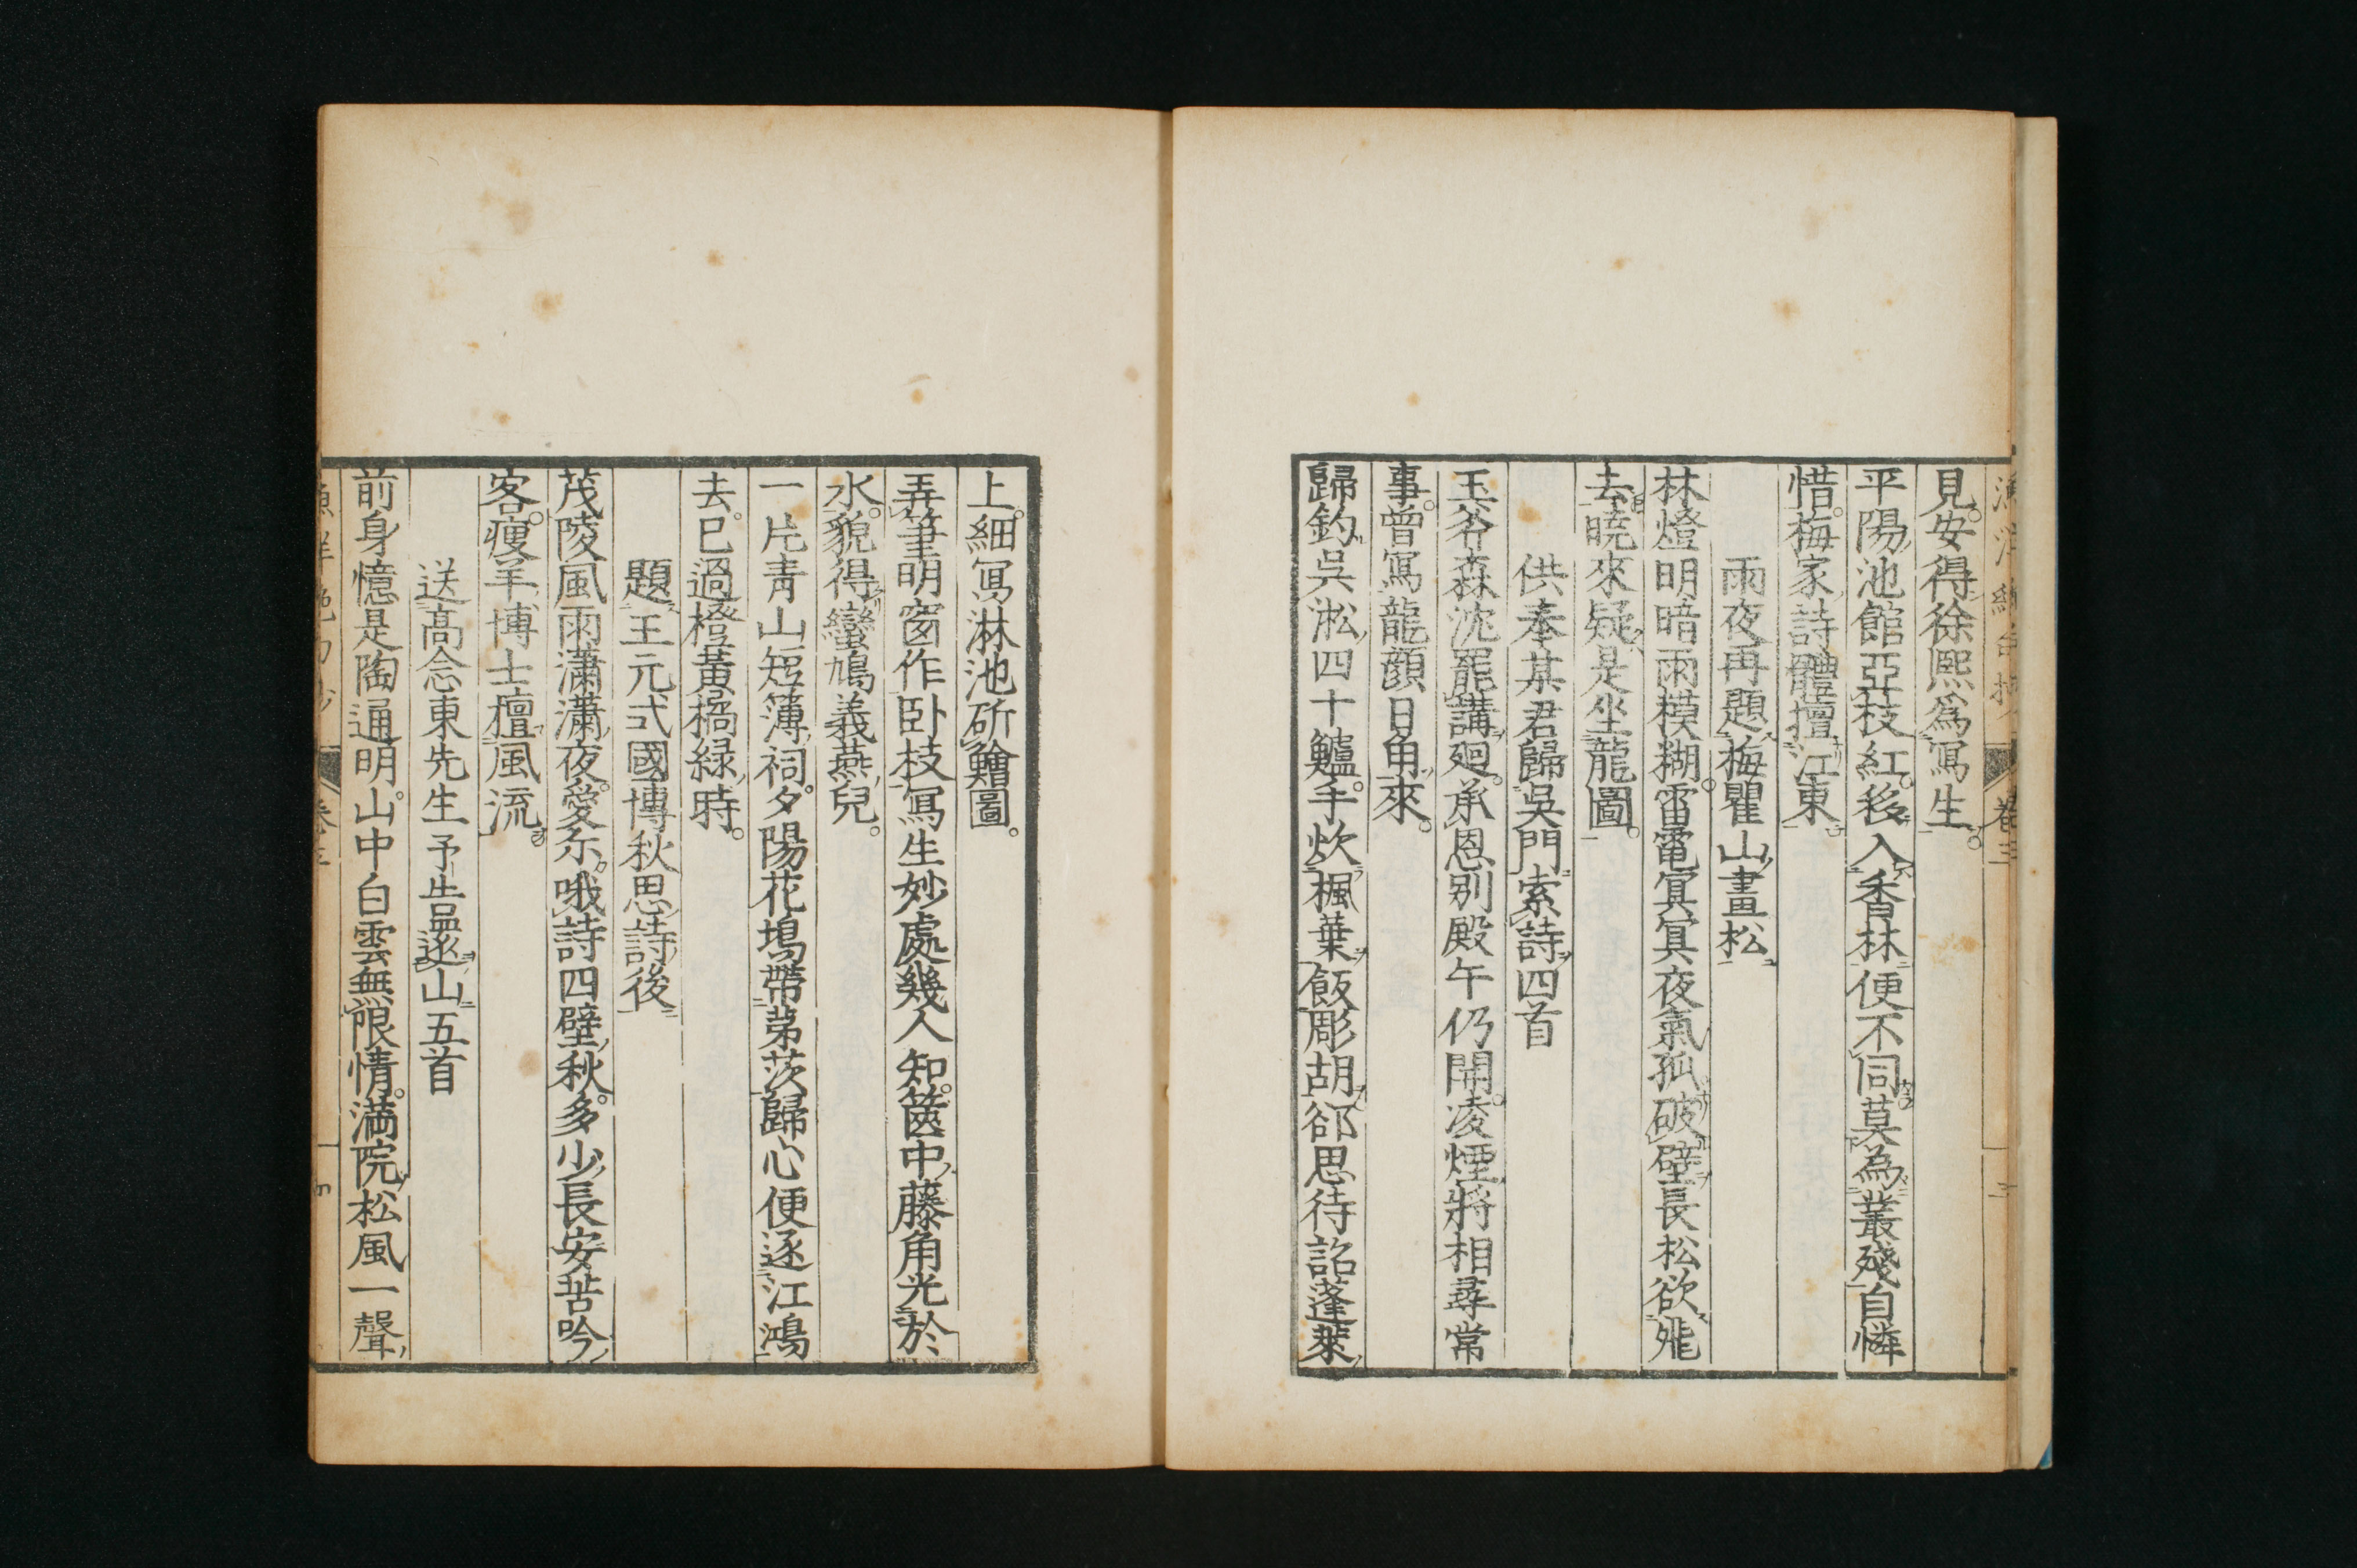 見。安得徐熙爲寫生。
平陽池館亞枝紅。移入香林便不同。莫為叢殘自憐
惜。梅家詩體擅江東。
雨夜再題梅瞿山畫松
林燈明暗雨模糊。雷電冥冥夜氣孤。破壁長松欲飛
去。曉來疑是坐龍圖。
供奉某君歸吳門索詩四首
玉斧森沈罷講廻。承恩别殿午仍開。凌煙將相尋常
事。曾寫龍顔日角來。
歸釣吳淞四十鱸。手炊楓葉飯彫胡。郤思待詔蓬萊
上。細寫淋池斫鱠圖。
弄筆明窗作卧枝。寫生妙處幾人知。篋中藤角光於
水。貌得蠻鳩義燕兒。
一片青山短簿祠。夕陽花塢帶茅茨。歸心便逐江鴻
去。已過橙黃橘緑時。
題王元式國博秋思詩後
茂陵風雨瀟瀟夜。愛尓哦詩四壁秋。多少長安苦吟
客。瘦羊博士擅風流。
送高念東先生予告還山五首
前身憶是陶通明。山中白雲無限情。滿院松風一聲
卷三